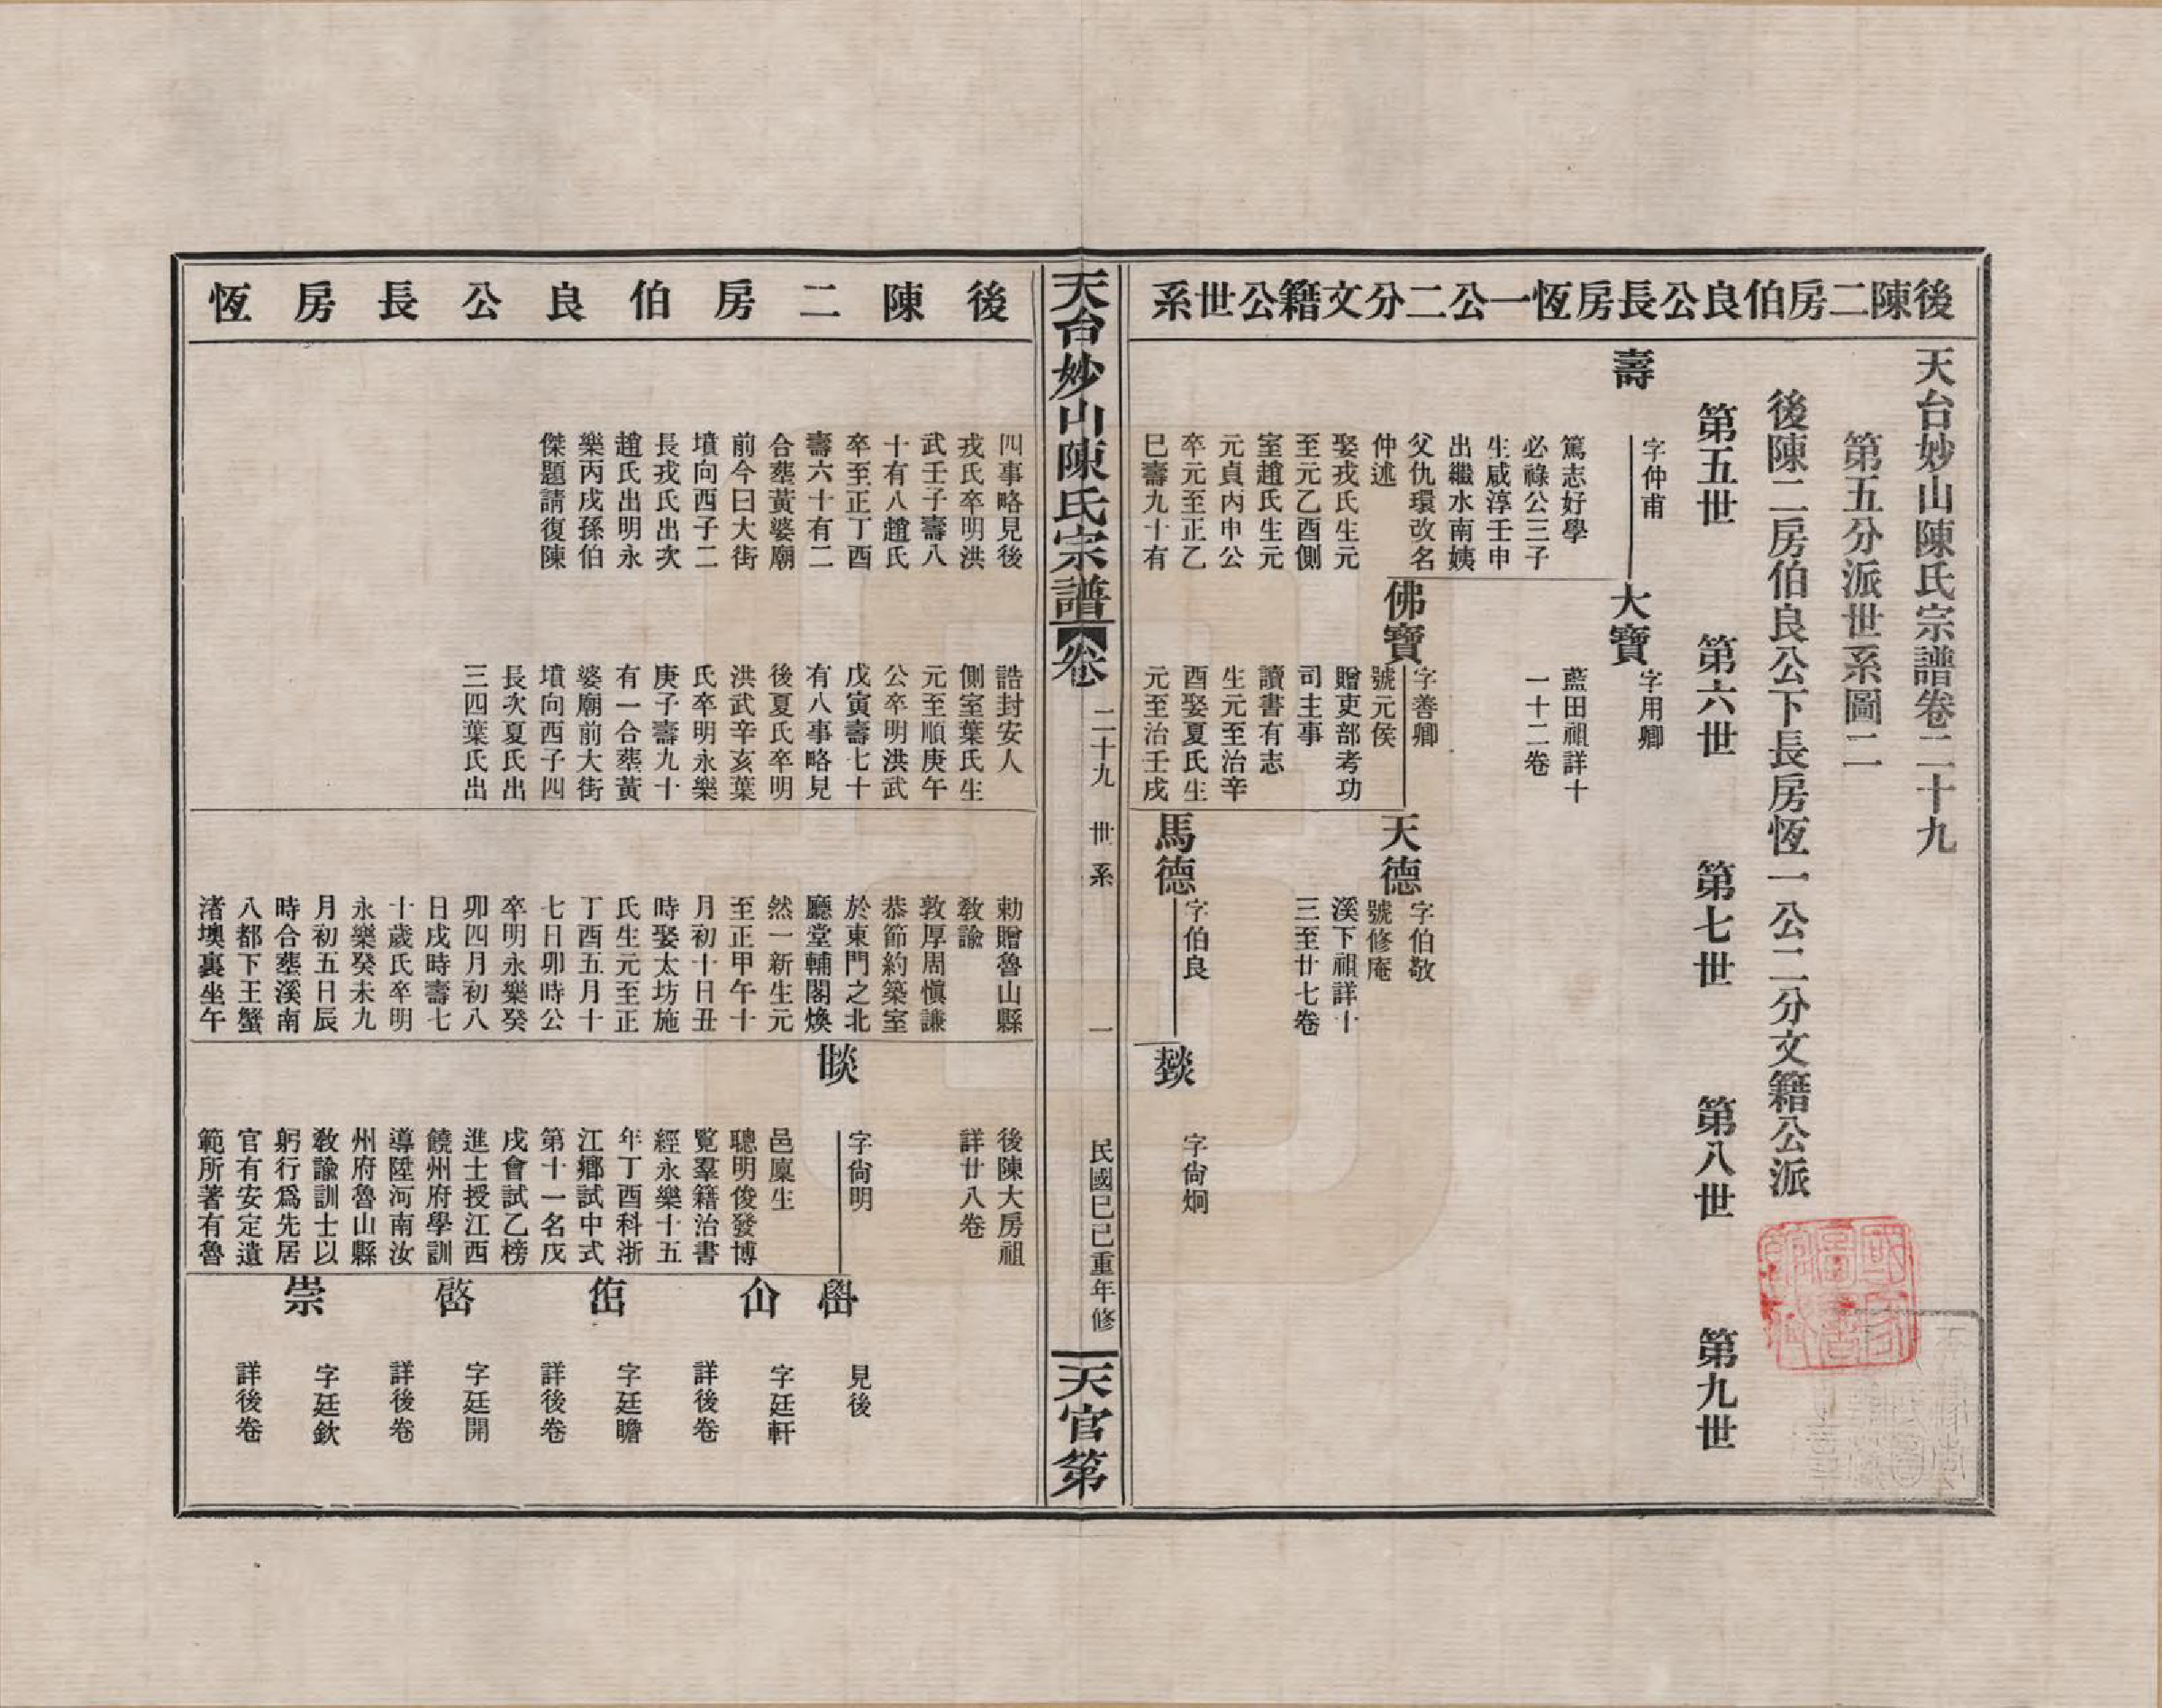 後陳二房伯良公長房恆一公二分文籍公世系
天台妙山陳氏宗譜卷二十九
第五分派世系圖二
後陳二房伯良公下長房恆一公二分文籍公派
第五世
第六世
第七世
第八世
第九世
壽
字仲甫
篤志好學
必祿公三子
生咸淳壬申
出繼水南姨
父仇環改名
仲述
娶戎氏生元
至元乙酉側
室趙氏生元
元貞丙申公
卒元至正乙
巳壽九十有
大寶
字用卿
藍田祖詳十
一十二卷
佛寶
字善卿
號元侯
贈吏部考功
司主事
讀書有志
生元至治辛
酉娶夏氏生
元至治壬戌
天德
字伯敬
號修庵
溪下祖詳十
三至廿七卷
馬德
字伯良
燅
字尙炯
天台妙山陳氏宗譜
卷
二十九
世系
一
民國己巳重年修
天官第
後陳二房伯良公長房恆
四事略見後
戎氏卒明洪
武壬子壽八
十有八趙氏
卒至正丁酉
壽六十有二
合塟黃婆廟
前今曰大街
墳向西子二
長戎氏出次
趙氏出明永
樂丙戌孫伯
傑題請復陳
誥封安人
側室葉氏生
元至順庚午
公卒明洪武
戊寅壽七十
有八事略見
後夏氏卒明
洪武辛亥葉
氏卒明永樂
庚子壽九十
有一合塟黃
婆廟前大街
墳向西子四
長次夏氏出
三四葉氏出
勅贈魯山縣
敎諭
敦厚周愼謙
恭節約築室
於東門之北
廳堂輔閣煥
然一新生元
至正甲午十
月初十日丑
時娶太坊施
氏生元至正
丁酉五月十
七日卯時公
卒明永樂癸
卯四月初八
日戌時壽七
十歲氏卒明
永樂癸未九
月初五日辰
時合塟溪南
八都下王蟹
渚墺裏坐午
後陳大房祖
詳廿八卷
字尙明
邑廩生
聰明俊發博
覽羣籍治書
經永樂十五
年丁酉科浙
江鄉試中式
第十一名戊
戌會試乙榜
進士授江西
饒州府學訓
導陞河南汝
州府魯山縣
敎諭訓士以
躬行爲先居
官有安定遺
範所著有魯
見後
字廷軒
詳後卷
字廷瞻
詳後卷
啓
字廷開
詳後卷
崇
字廷欽
詳後卷